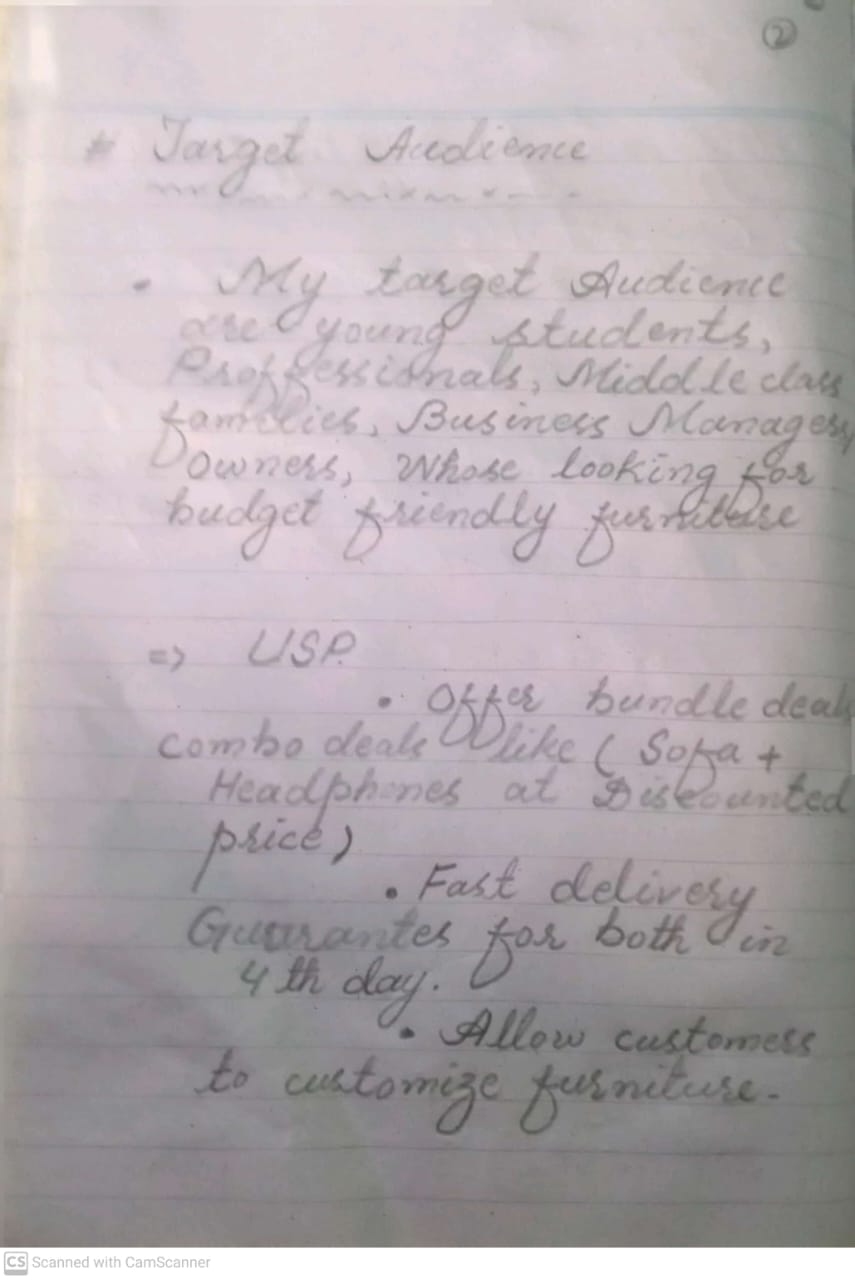 2
* Target Audience
• My target Audience
are young students,
Proffessionals, Middle class
families, Business Managers,
Owners, Whose looking for
budget friendly furniture
=> USP.
• Offer bundle deals
combo deals like ( Sofa +
Headphones at Discounted
price)
• Fast delivery
Guarantes for both in
4 th day.
• Allow customers
to customize furniture.
CS Scanned with CamScanner